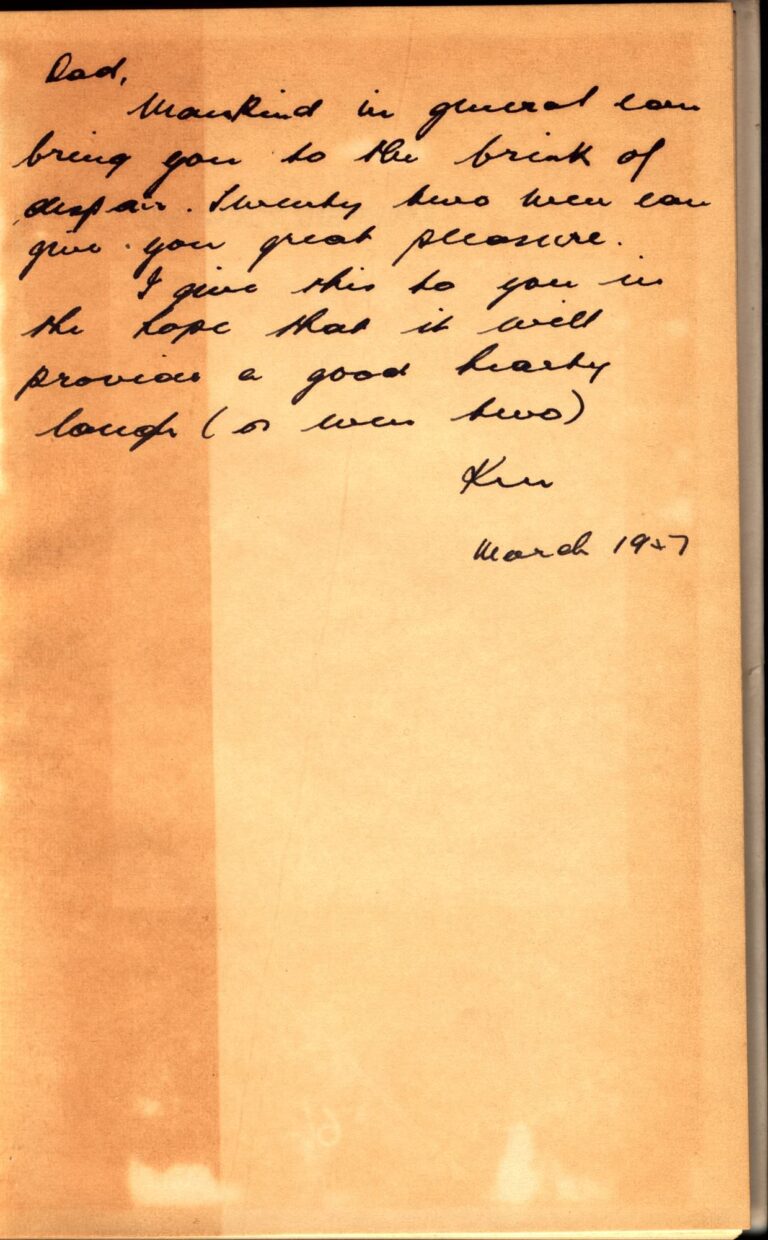 Dad,
Mankind in general can
bring you to the brink of
despair. Twenty two men can
give you great pleasure.
I give this to you in
the hope that it will
provide a good hearty
laugh (or even two)
Ken
March 1957